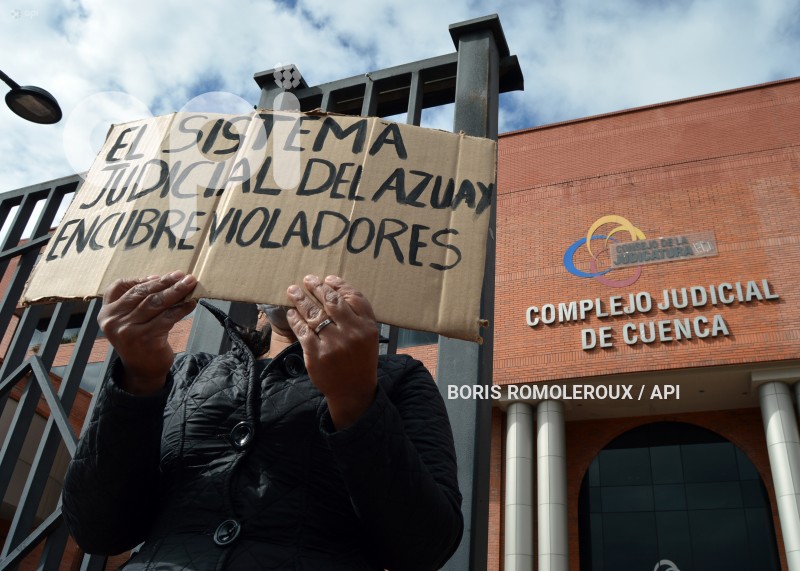 EL SISTEMA
JUDICIAL DEL AZUAY
ENCUBRE VIOLADORES
CONSEJO DE LA
JUDICATURA
COMPLEJO JUDICIAL
DE CUENCA
BORIS ROMOLEROUX / API
api